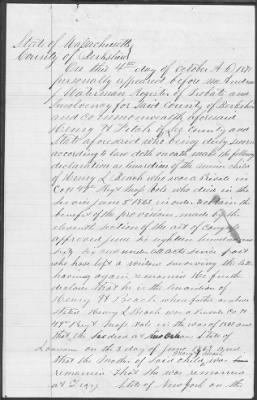 State of Massachusetts
County of Berkshire
On this 4th day of October A.D. 187
personally appeared before me Andrew
J Waterman Register of Probate and
Insolvency for said County of Berkshire
and Commonwealth aforesaid
Henry H Fitch of Lee County and
State aforesaid who being duly sworn
according to law doth on oath make the following
declaration as Guardian of the minor child
of Henry L Beach who was a Private in
Co H 49th Regt Mass Vols who died in the
service June 5 1863 in order to obtain the
benefit of the provision made by the
eleventh section of the act of Congress
approved June six eighteen hundred and
sixty six and under
who has left a widow surviving the latter
having again remarried
declares that he is the Guardian of
Henry H Beach whose father as above
stated Henry L Beach was a Private Co H
49th Regt Mass Vols in the war of 1861 and
that he died at State of
Louisiana on the 5 day of June 1863 and
that the Mother of said child was
remarried that she was remarried
at Troy State of New York on the